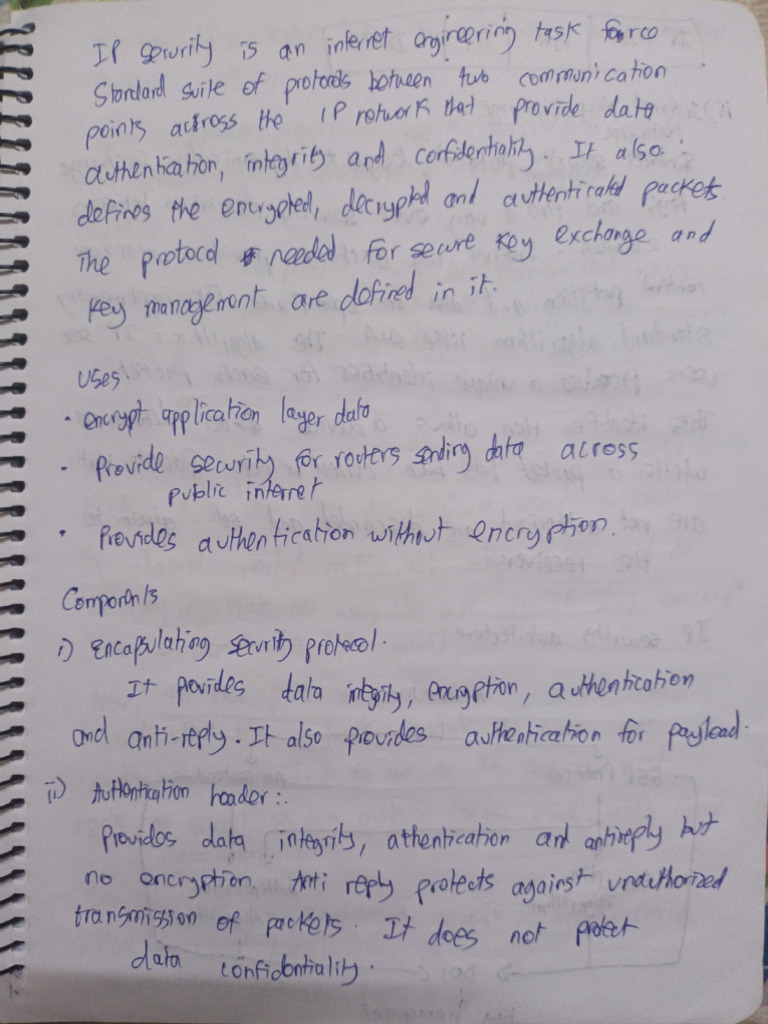 IP security is an internet engineering task force
Standard suite of protocols between two communication
points across the IP network that provide data
authentication, integrity and confidentiality. It also
defines the encrypted, decrypted and authenticated packets.
The protocol needed for secure key exchange and
key management are defined in it.
Uses:
• encrypt application layer data
• Provide security for routers sending data across
public internet
• Provides authentication without encryption.
Components
i) Encapsulating security protocol.
It provides data integrity, encryption, authentication
and anti-reply. It also provides authentication for payload.
ii) Authentication header:.
Provides data integrity, athentication and antireply but
no encryption. Anti reply protects against unauthorized
transmission of packets. It does not protect
data confidentiality.